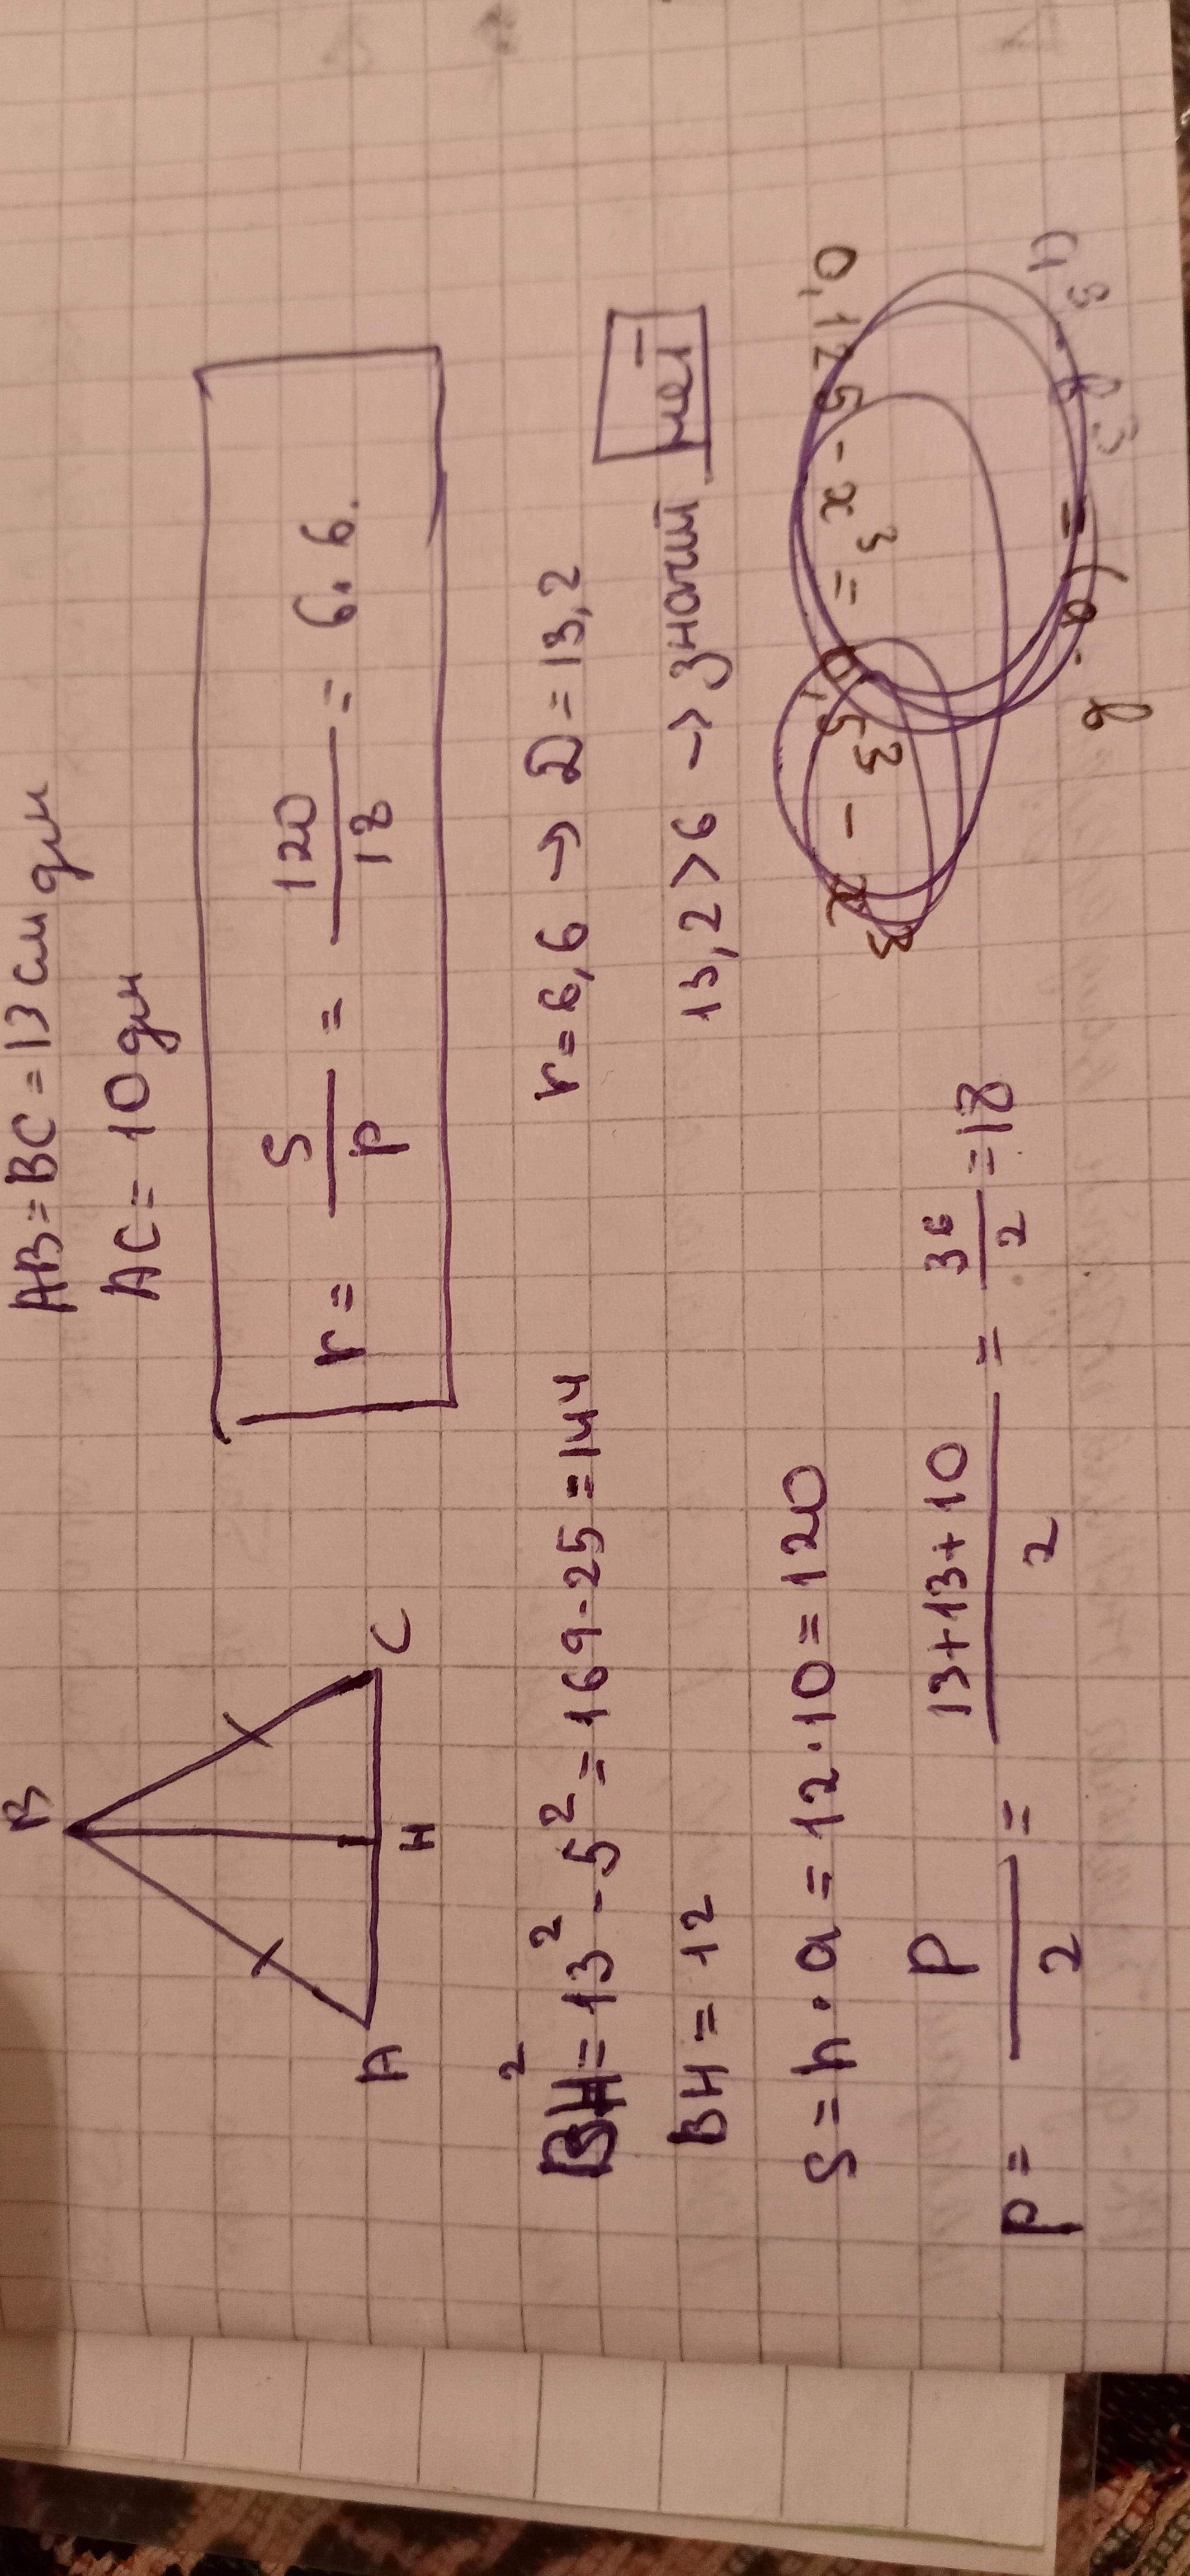 AB=BC=13см дм
AC=10 дм
B
A
H
C
r= S/p = 120/18 = 6.6.
BH²=13²-5²=169-25=144
r=6,6→D=13,2
BH=12
13,2>6→значит нет
S=h·a=12·10=120
p= P/2 = 13+13+10/2 = 36/2 =18
0,125-x³=0,5³-x³